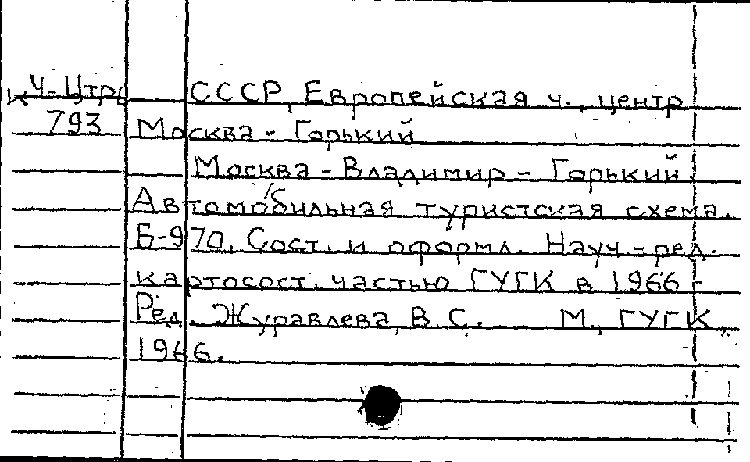 К Ч-Цтр. СССР, Европейская ч., центр
793 Москва - Горький
Москва - Владимир - Горький.
Автомобильная туристская схема.
Б-970. Сост. и оформл. Науч.-ред.
картосост. частью ГУГК в 1966 г.
Ред. Журавлева В.С. М., ГУГК,
1966.